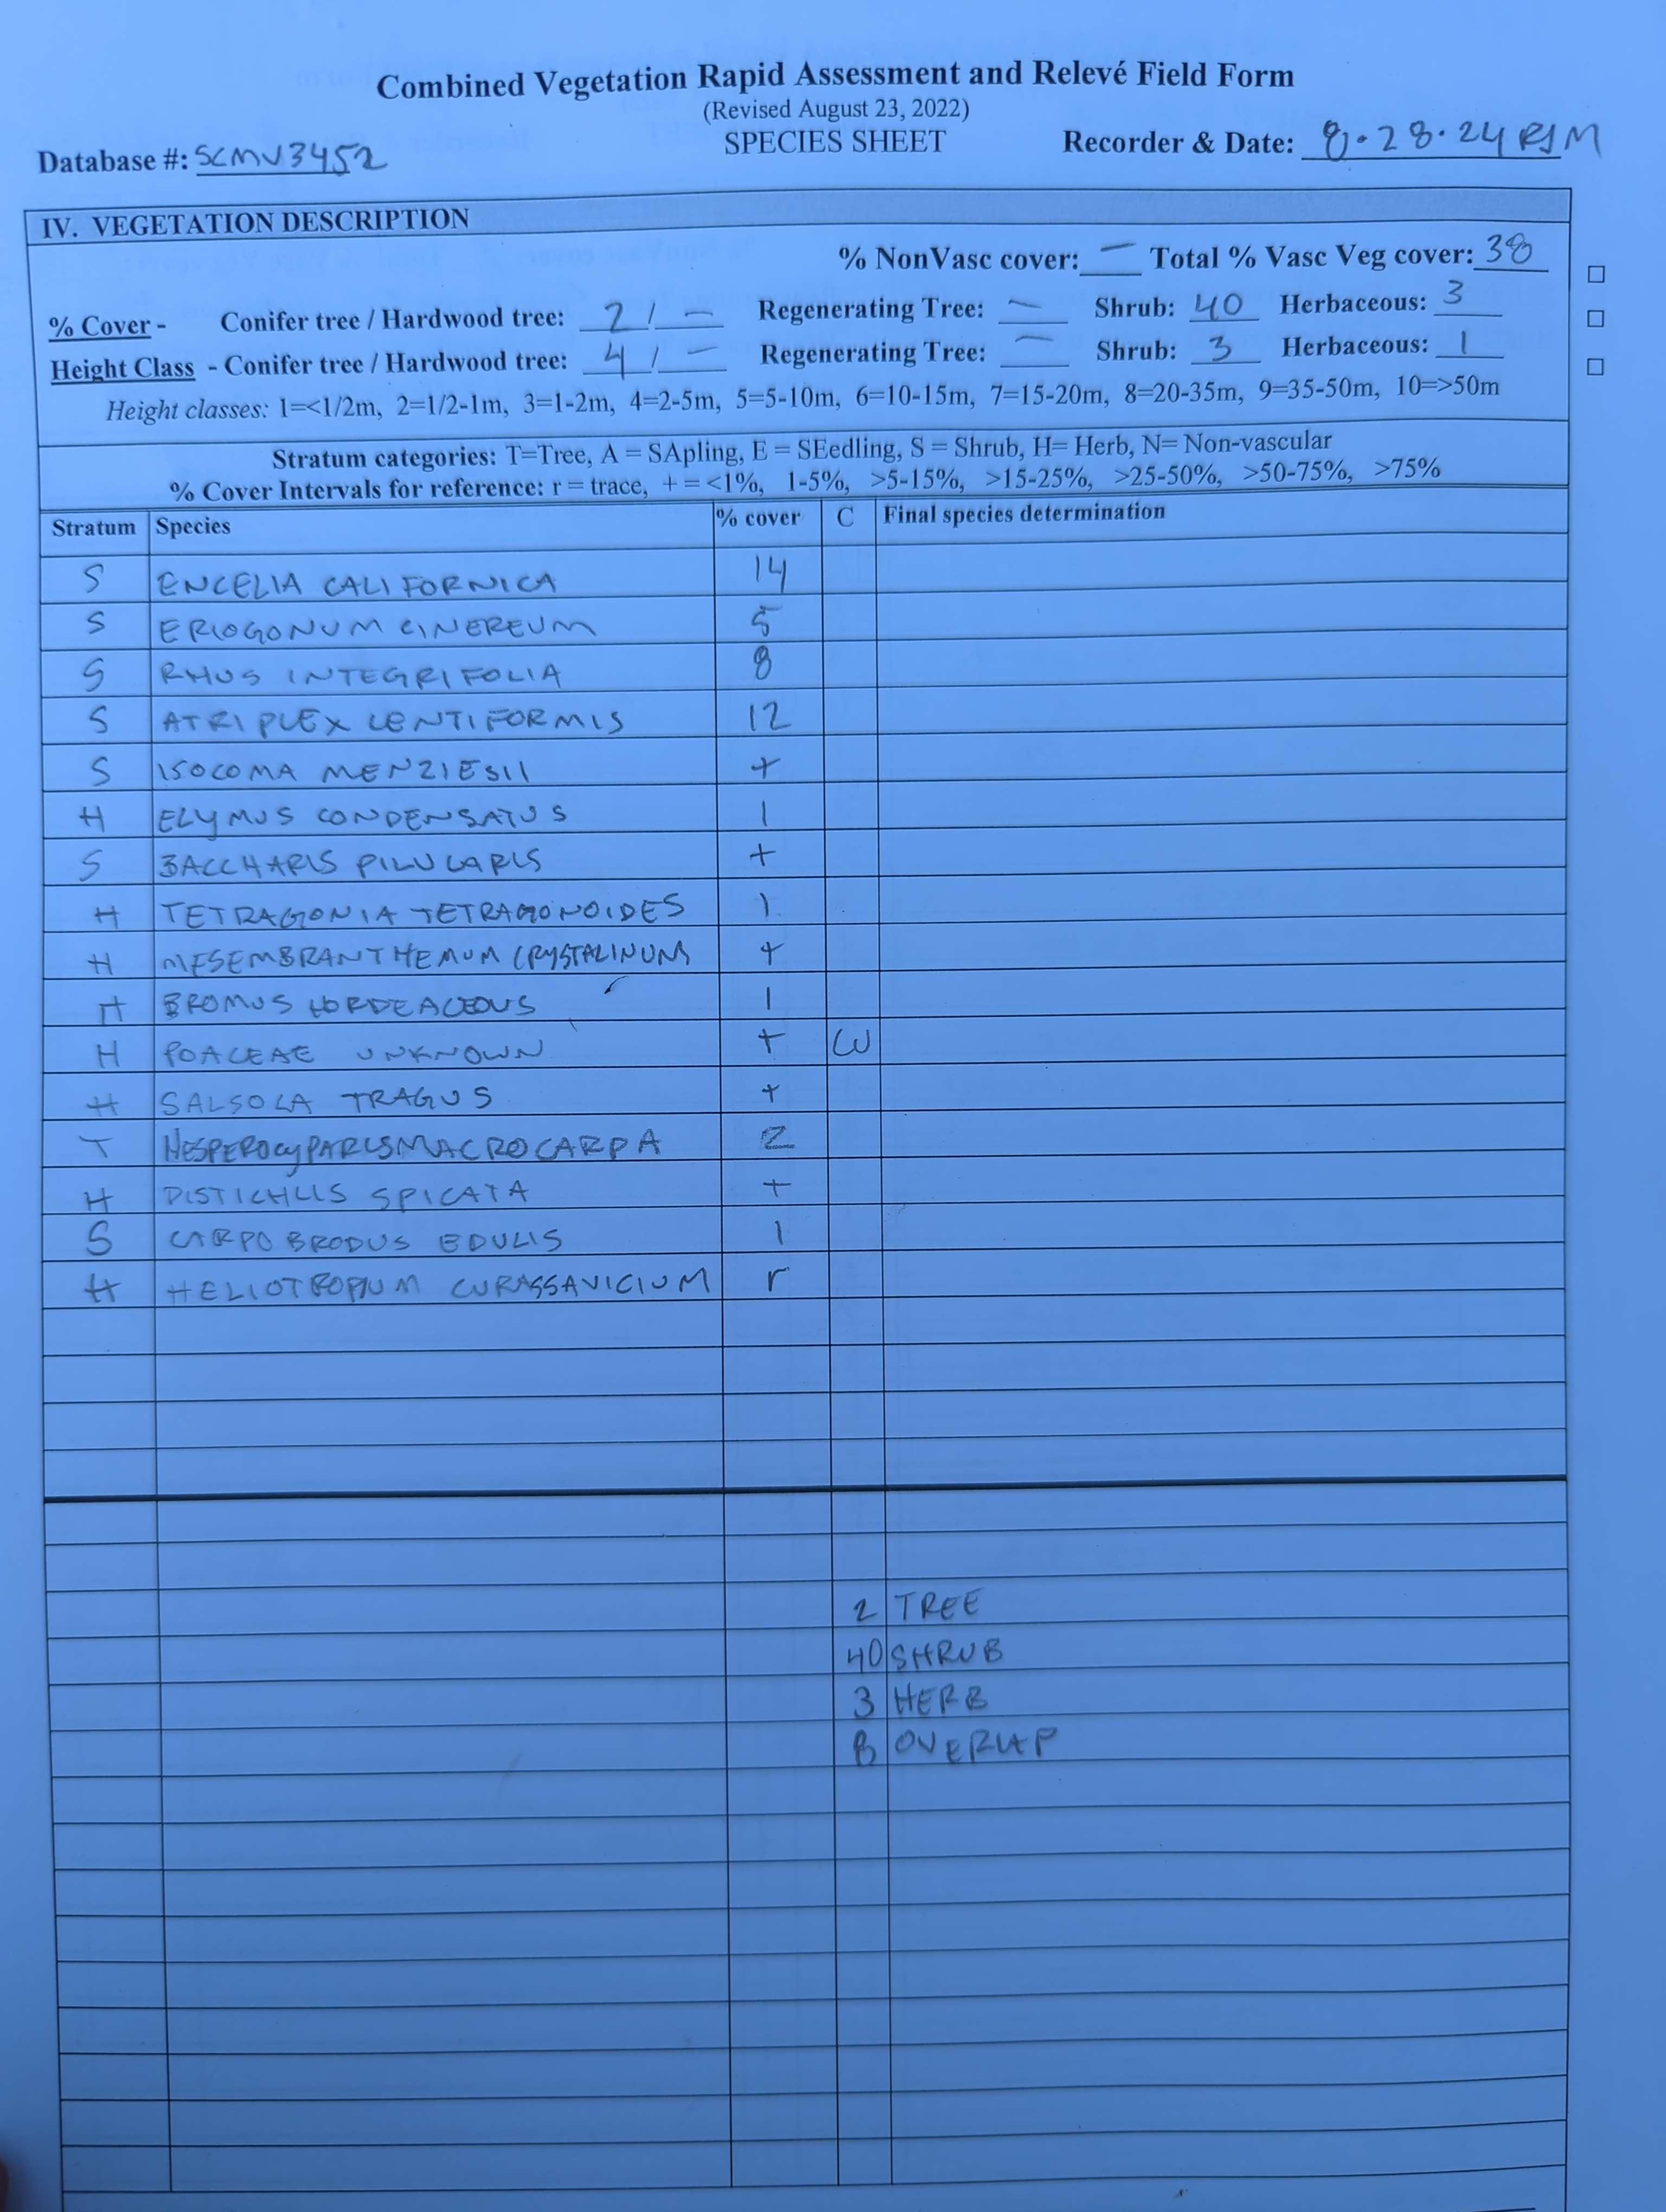 Combined Vegetation Rapid Assessment and Relevé Field Form
(Revised August 23, 2022)
SPECIES SHEET
Database #: SCMV3452
Recorder & Date: 8.28.24 RJM
IV. VEGETATION DESCRIPTION
% NonVasc cover: — Total % Vasc Veg cover: 38
% Cover - Conifer tree / Hardwood tree: 2 / — Regenerating Tree: — Shrub: 40 Herbaceous: 3
Height Class - Conifer tree / Hardwood tree: 4 / — Regenerating Tree: — Shrub: 3 Herbaceous: 1
Height classes: 1=<1/2m, 2=1/2-1m, 3=1-2m, 4=2-5m, 5=5-10m, 6=10-15m, 7=15-20m, 8=20-35m, 9=35-50m, 10=>50m
Stratum categories: T=Tree, A = SApling, E = SEedling, S = Shrub, H= Herb, N= Non-vascular
% Cover Intervals for reference: r = trace, + = <1%, 1-5%, >5-15%, >15-25%, >25-50%, >50-75%, >75%
Stratum Species % cover C Final species determination
S ENCELIA CALIFORNICA 14
S ERIOGONUM CINEREUM 5
S RHUS INTEGRIFOLIA 8
S ATRIPLEX LENTIFORMIS 12
S ISOCOMA MENZIESII +
H ELYMUS CONDENSATUS 1
S BACCHARIS PILULARIS +
H TETRAGONIA TETRAGONOIDES 1
H MESEMBRANTHEMUM CRYSTALINUM +
H BROMUS HORDEACEOUS 1
H POACEAE UNKNOWN + W
H SALSOLA TRAGUS +
T HESPEROCYPARIS MACROCARPA 2
H DISTICHLIS SPICATA +
S CARPOBRODUS EDULIS 1
H HELIOTROPIUM CURASSAVICIUM r
2 TREE
40 SHRUB
3 HERB
8 OVERLAP